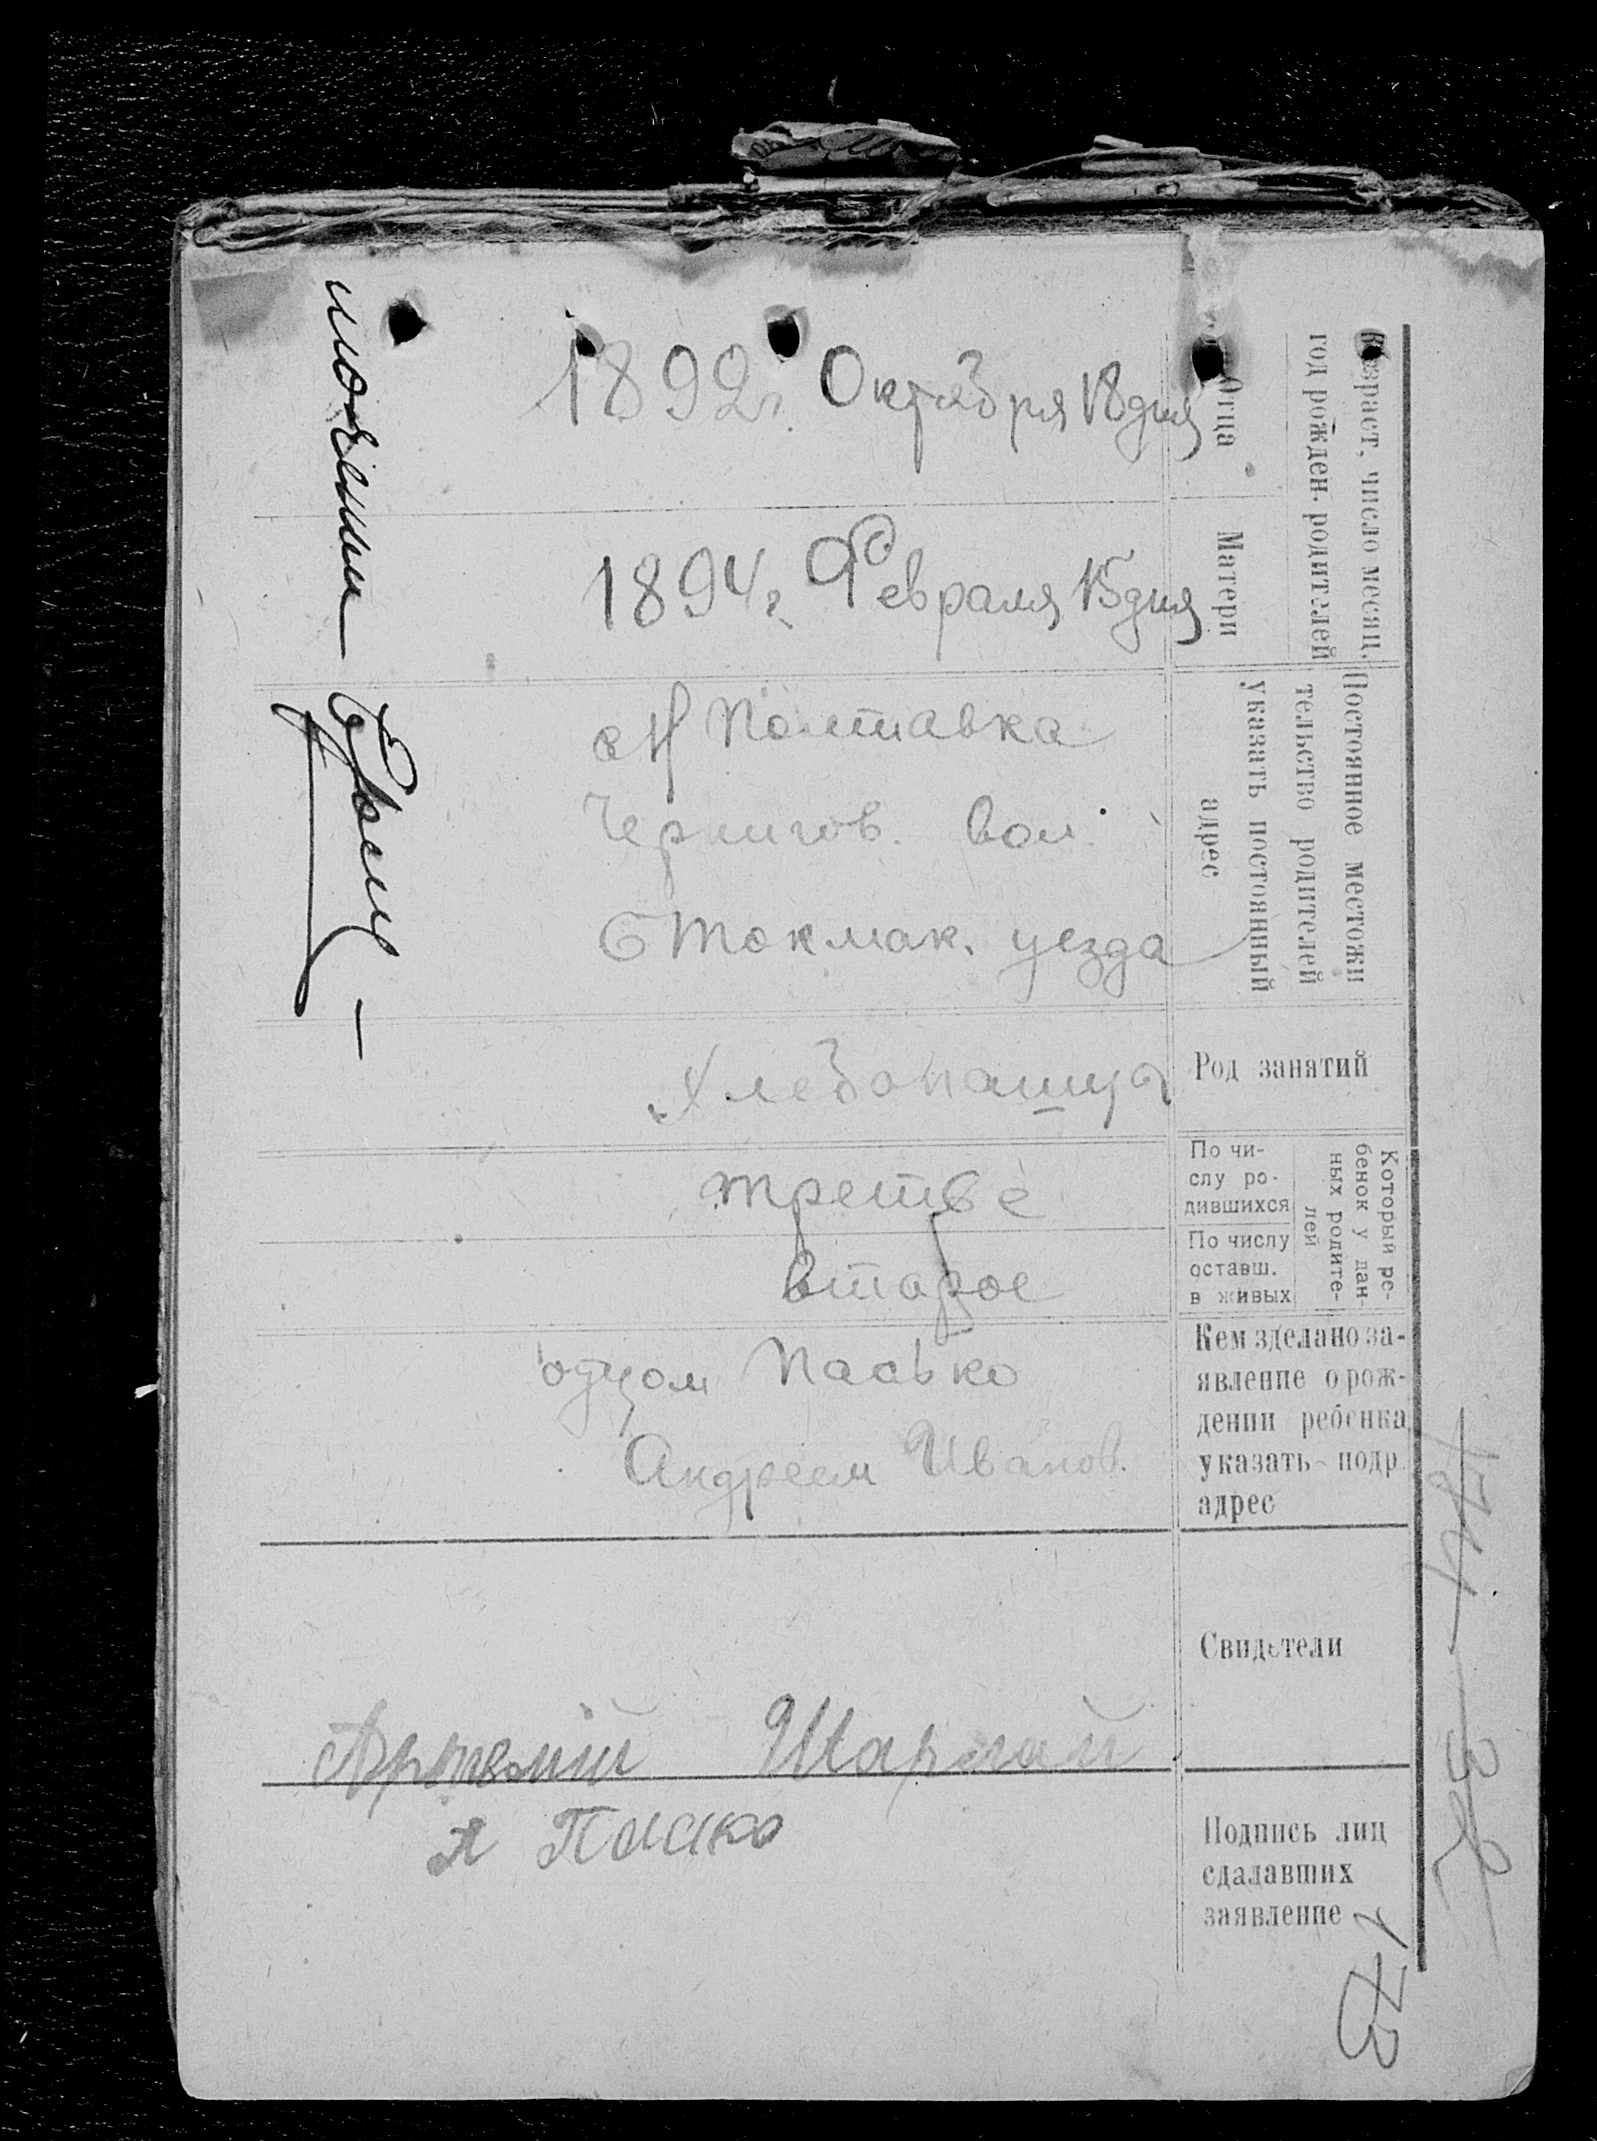 Возраст, число месяц,
год рожден. родителей
Отца
1892г. Октября 18 дня
Матери
1894 г. Февраля 15 дня
Постоянное местожи
тельство родителей
указать постоянный
адрес
с Н Полтавка
Чернигов. вол.
Б Токмак. уезда
Род занятий
Хлебопашца
Который ре-
бенок у дан-
ных родите-
лей
По чи-
слу ро-
дившихся
третье
По числу
оставш.
в живых
второе
Кем зделано за-
явление о рож-
дении ребенка
указать подр.
адрес
отцом Пасько
Андреем Иванов.
Свидетели
Артемий Шаргай
Подпись лиц
сдалавших
заявление
А Паско
174
32
173